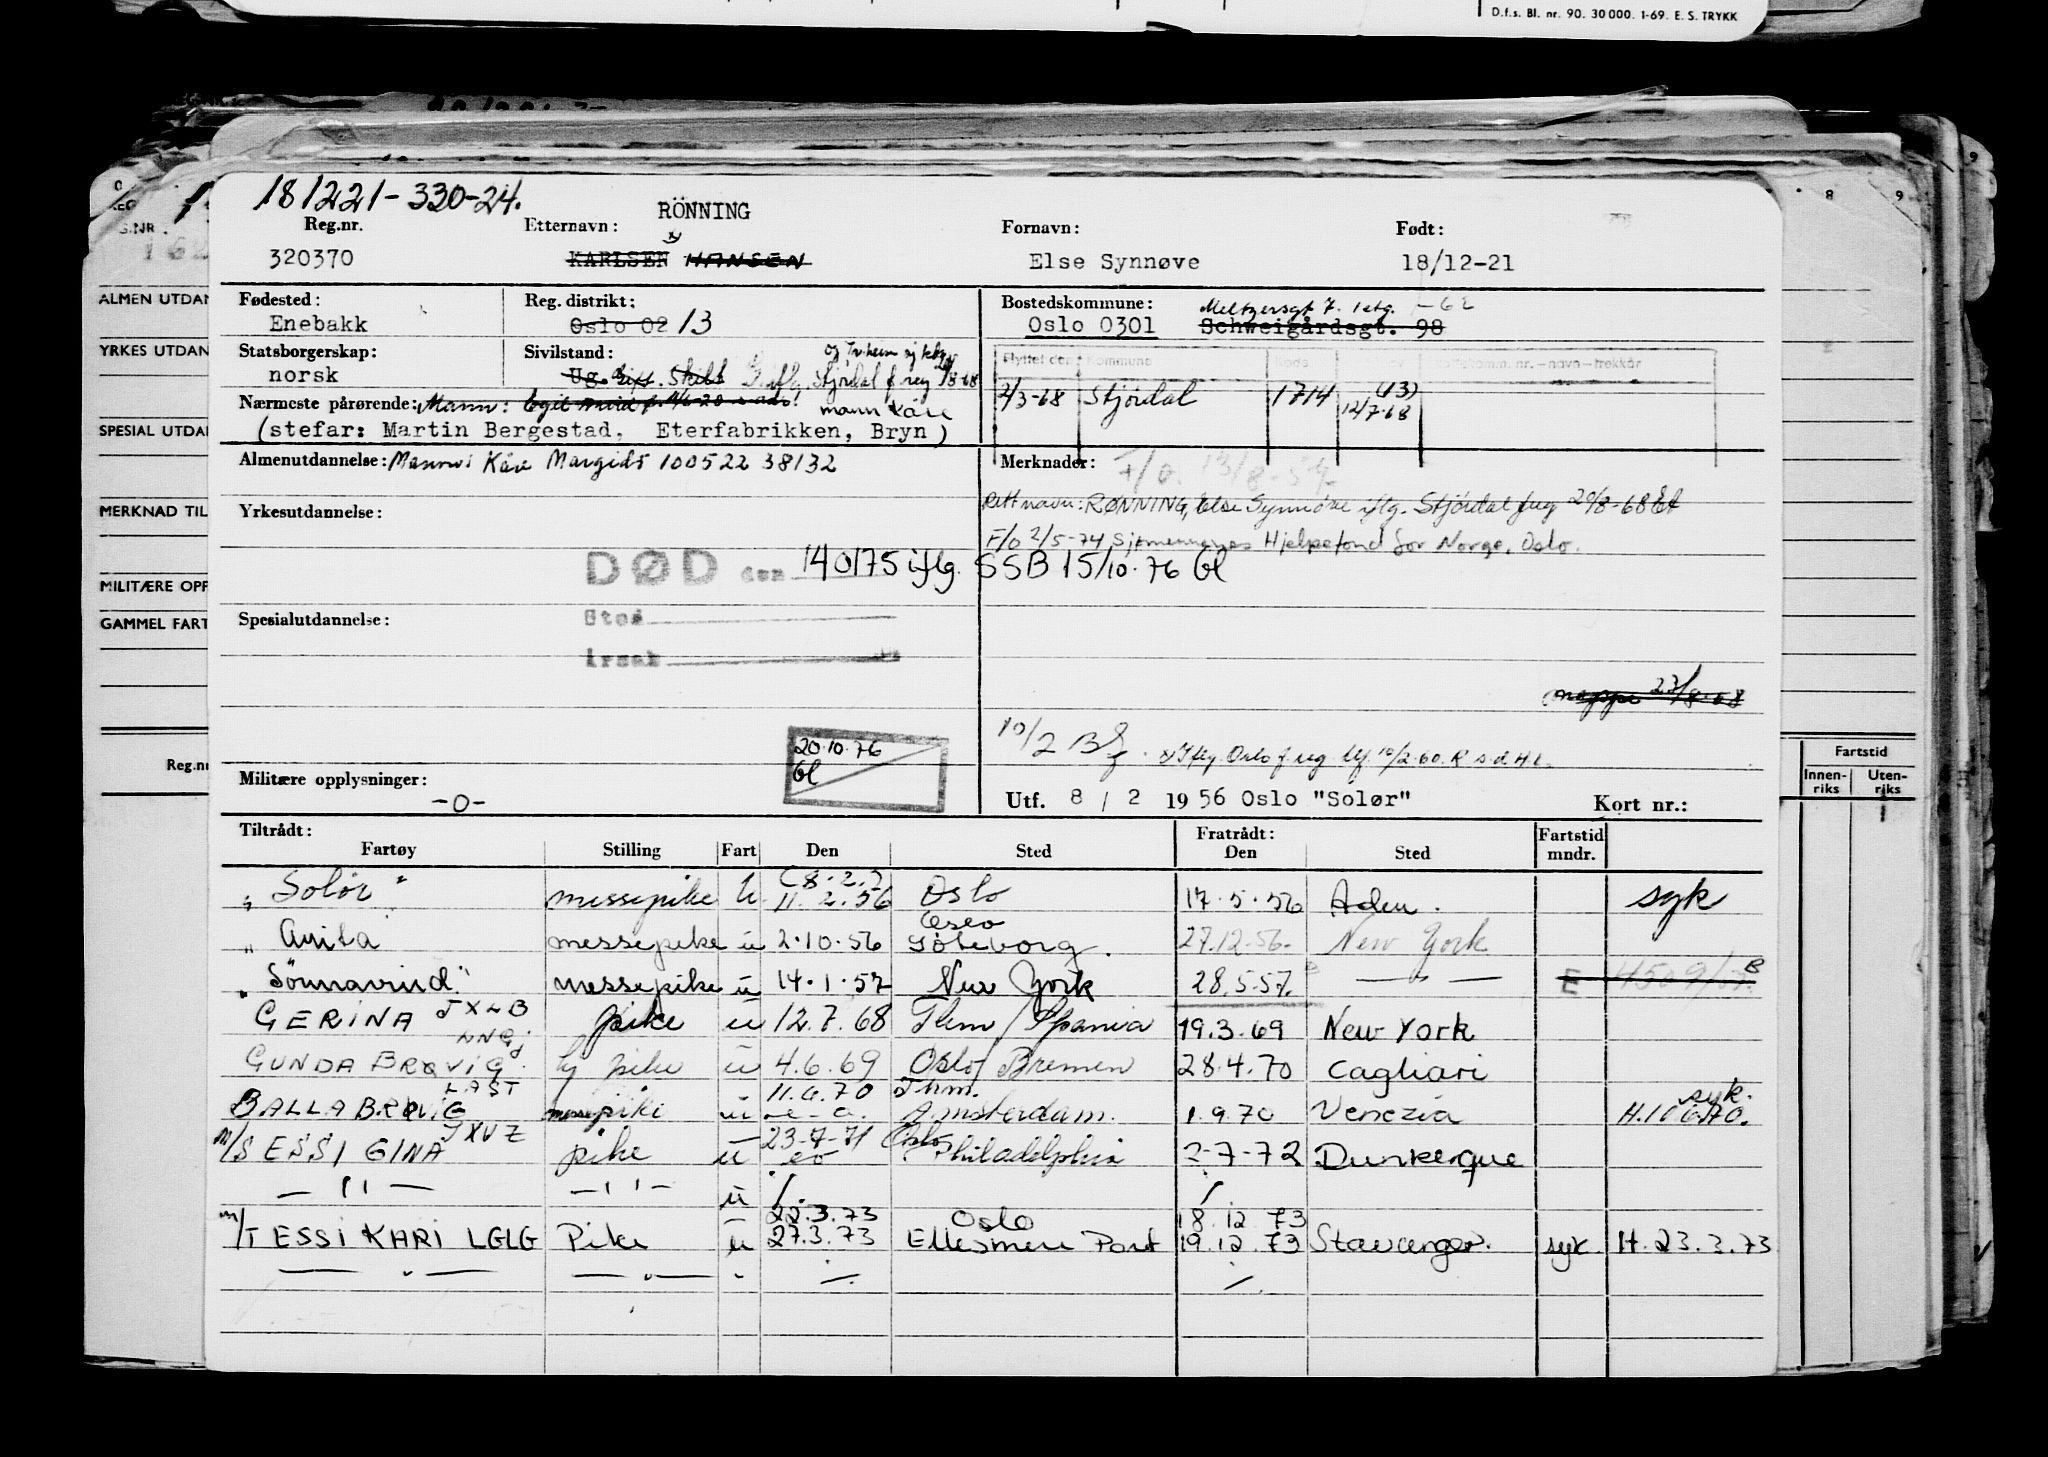 D.f.s. Bl. nr. 90. 30 000. 1-69. E. S. TRYKK
181221-330-24.
Reg.nr. Etternavn: RÖNNING Fornavn: Født:
320370 KARLSEN HANSEN Else Synnøve 18/12-21
Fødested: Reg. distrikt: Bostedskommune: Meltzersgt 7. 1 etg. -62
Enebakk Oslo 02 13 Oslo 0301 Schweigårdsgt. 98
Statsborgerskap: Sivilstand:
norsk Ug. Gift. Skilt Stjørdal f reg
Flyttet den Kommune Kode
2/3-68 Stjørdal 1714 (13) 12/7-68
Nærmeste pårørende: Mann: mann Kåre
(stefar: Martin Bergestad, Eterfabrikken, Bryn)
Almenutdannelse: Mann: Kåre Margido 100522 38132
Merknader: F/o. 13/8-57
Rett navn: RØNNING, Else Synnöve iflg. Stjørdal freg 20/8-68
Yrkesutdannelse:
F/o 2/5-74 Sjømennenes Hjelpefond for Norge, Oslo.
DØD den 140175 iflg. SSB 15/10-76 Gl
Spesialutdannelse:
Sted
Årsak
mappe 23/8-68
10/2 B
x) Iflg. Oslo f reg 10/2-60.
20.10.76
Gl
Militære opplysninger:
-0-
Utf. 8 / 2 1956 Oslo "Solør" Kort nr.:
Tiltrådt: Fratrådt: Fartstid
Fartøy Stilling Fart Den Sted Den Sted mndr.
" Solør " messepike u (8.2.) 11.2.56 Oslo 17.5.56 Aden. syk
" Anita messepike u 2.10.56 Oslo Göteborg. 27.12.56. New York
" Sönnavind " messepike u 14.1.57 New York 28.5.57. — " — E 4509/57. B
GERINA JXLB pike u 12.7.68 Thm / Spania 19.3.69 New York
GUNDA BRØVIG LNGJ pike u 4.6.69 Oslo / Bremen 28.4.70 Cagliari
BALLA BROVIG LAST messepike u 11.6.70 Thm. Amsterdam. 1.9.70 Venezia syk. H.10.6.70.
M/S ESSI GINA JXUZ pike u 23-7-71 Oslo Philadelphia 2-7-72 Dunkerque
— " — — " — u /. /
m/T ESSI KARI LGLG Pike u 22.3.73 27.3.73 Oslo Ellesmere Port 18.12.73 19.12.73 Stavanger. syk H. 23.3.73
— " — — " — - /. /.
ALMEN UTDAN
YRKES UTDAN
SPESIAL UTDAN
MERKNAD TIL
MILITÆRE OPP
GAMMEL FART
Reg.nr
Fartstid
Innen-riks Uten-riks
8 9